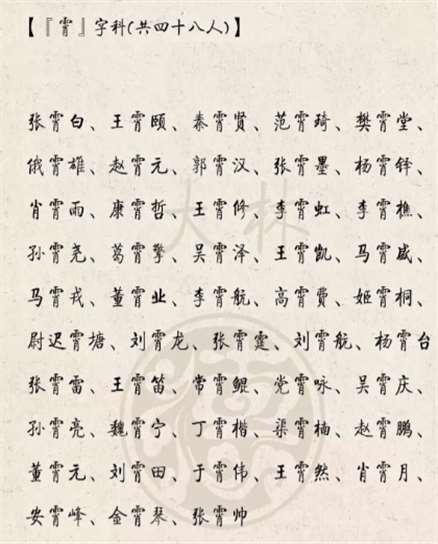 【『霄』字科(共四十八人)】
张霄白、王霄颐、秦霄贤、范霄琦、樊霄堂、
俄霄雄、赵霄元、郭霄汉、张霄墨、杨霄铎、
肖霄雨、康霄哲、王霄修、李霄虹、李霄樵、
孙霄尧、葛霄擎、吴霄泽、王霄凯、马霄威、
马霄戎、董霄业、李霄航、高霄费、姬霄桐、
尉迟霄塘、刘霄龙、张霄霆、刘霄航、杨霄台
张霄雷、王霄笛、常霄鲲、党霄咏、吴霄庆、
孙霄亮、魏霄宁、丁霄楷、渠霄楠、赵霄鹏、
董霄元、刘霄田、于霄伟、王霄然、肖霄月、
安霄峰、金霄琴、张霄帅
大林